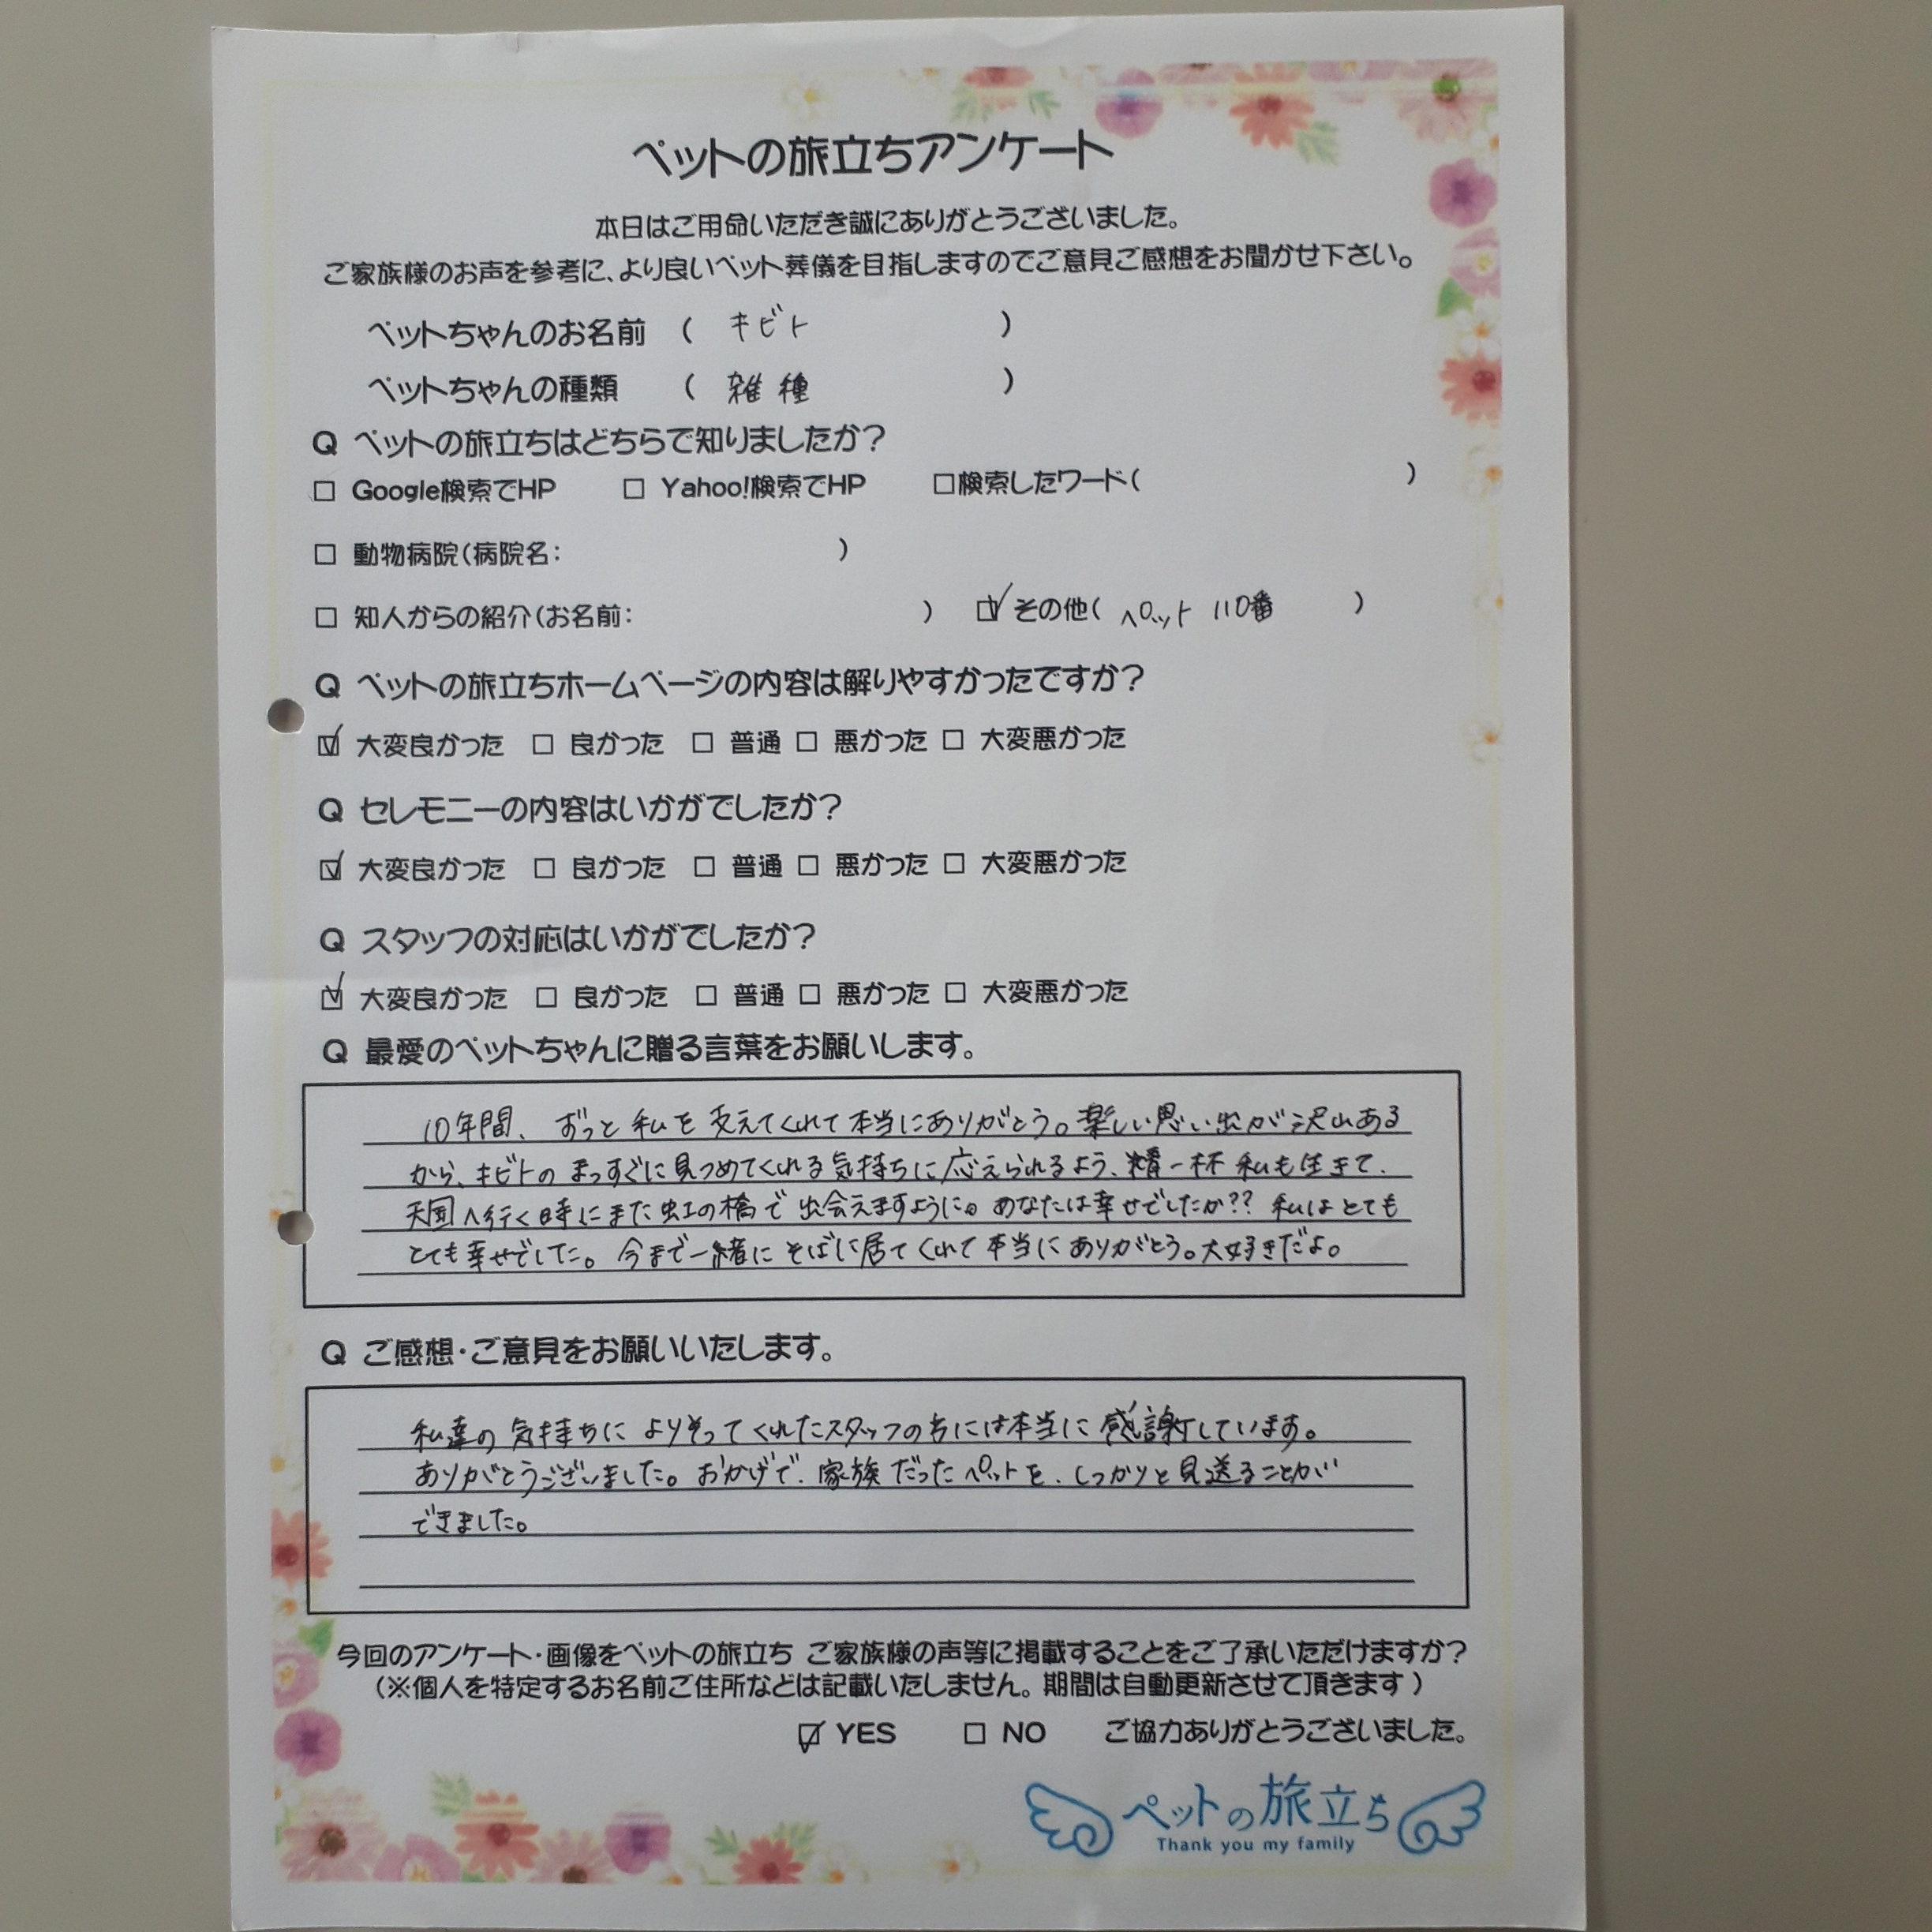 ペットの旅立ちアンケート
本日はご用命いただき誠にありがとうございました。
ご家族様のお声を参考に、より良いペット葬儀を目指しますのでご意見ご感想をお聞かせ下さい。
ペットちゃんのお名前 ( キビト )
ペットちゃんの種類 ( 雑種 )
Q ペットの旅立ちはどちらで知りましたか?
□ Google検索でHP □ Yahoo!検索でHP □検索したワード( )
□ 動物病院(病院名: )
□ 知人からの紹介(お名前: ) ☑ その他( ペット110番 )
Q ペットの旅立ちホームページの内容は解りやすかったですか?
☑ 大変良かった □ 良かった □ 普通 □ 悪かった □ 大変悪かった
Q セレモニーの内容はいかがでしたか?
☑ 大変良かった □ 良かった □ 普通 □ 悪かった □ 大変悪かった
Q スタッフの対応はいかがでしたか?
☑ 大変良かった □ 良かった □ 普通 □ 悪かった □ 大変悪かった
Q 最愛のペットちゃんに贈る言葉をお願いします。
10年間、ずっと私を支えてくれて本当にありがとう。楽しい思い出が沢山ある
から、キビトのまっすぐに見つめてくれる気持ちに応えられるよう、精一杯私も生きて、
天国へ行く時にまた虹の橋で出会えますように。あなたは幸せでしたか?? 私はとても
とても幸せでした。今まで一緒にそばに居てくれて本当にありがとう。大好きだよ。
Q ご感想・ご意見をお願いいたします。
私達の気持ちによりそってくれたスタッフの方には本当に感謝しています。
ありがとうございました。おかげで、家族だったペットを、しっかりと見送ることが
できました。
今回のアンケート・画像をペットの旅立ち ご家族様の声等に掲載することをご了承いただけますか?
(※個人を特定するお名前ご住所などは記載いたしません。期間は自動更新させて頂きます)
☑ YES □ NO ご協力ありがとうございました。
ペットの旅立ち
Thank you my family